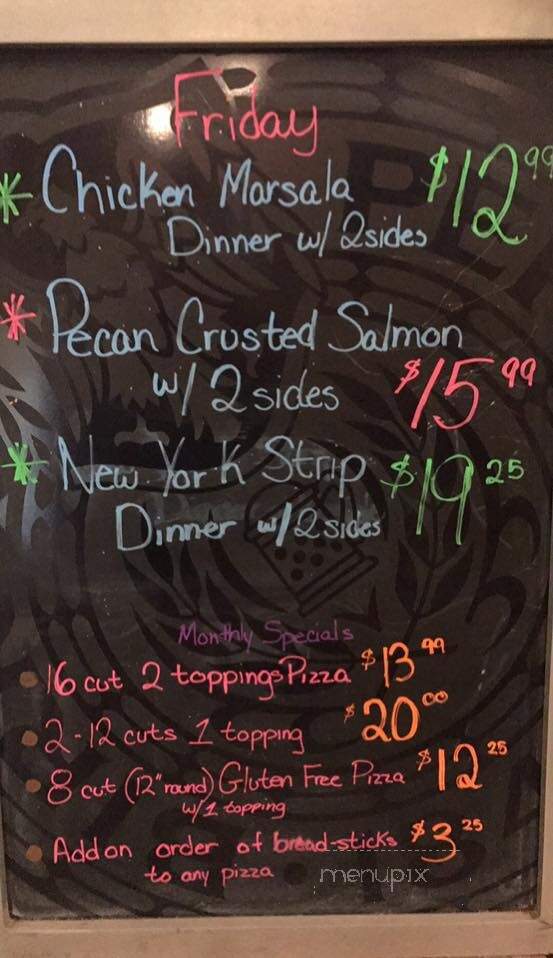 Friday
* Chicken Marsala $12.99
Dinner w/ 2 sides
* Pecan Crusted Salmon
w/ 2 sides $15.99
* New York Strip $19.25
Dinner w/ 2 sides
Monthly Specials
• 16 cut 2 toppings Pizza $13.99
• 2-12 cuts 1 topping $20.00
• 8 cut (12" round) Gluten Free Pizza $12.25
w/1 topping
• Add on order of bread-sticks $3.25
to any pizza
menupix